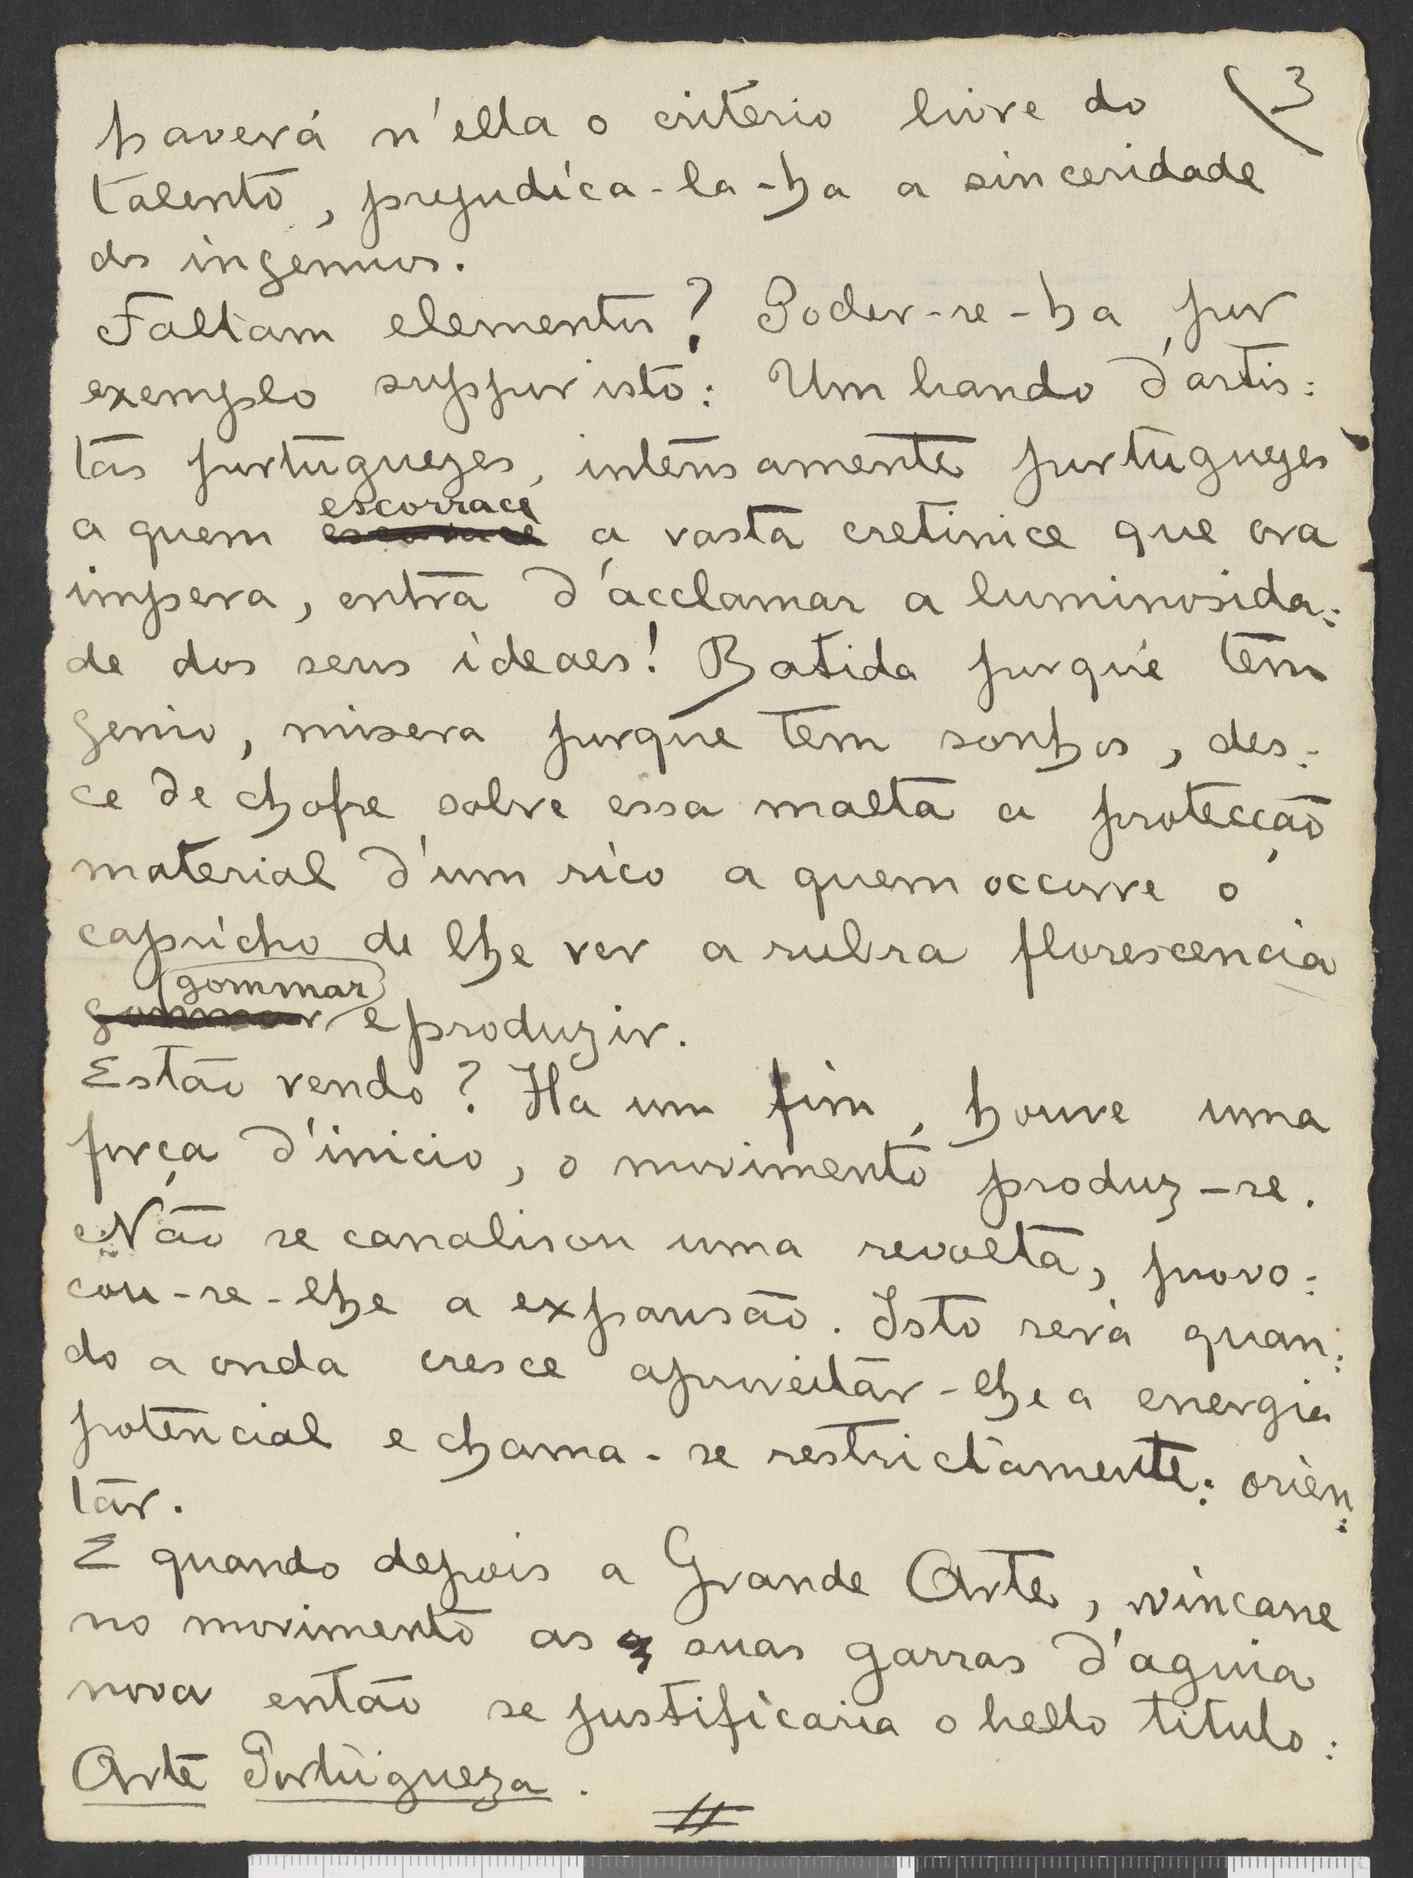 3
haverá n'ella o criterio livre do
talento, prejudica-la-ha a sinceridade
dos ingenuos.
Faltam elementos? Poder-se-ha por
exemplo suppôr isto: Um bando d'artis:
tas portuguezes, intensamente portuguezes
a quem escorrace a vasta cretinice que ora
impera, entra d'acclamar a luminosida:
de dos seus ideaes! Batida porque tem
genio, misera porque tem sonhos, des:
ce de chofre sobre essa malta a protecção
material d'um rico a quem occorre o
capricho de lhe ver a rubra florescencia
gommar e produzir.
Estão vendo? Ha um fim, houve uma
força d'inicio, o movimento produz-se.
Não se canalisou uma revolta, provo:
cou-se-lhe a expansão. Isto será quan:
do a onda cresce aproveitar-lhe a energia
potencial e chama-se restrictamente: orien:
tar.
E quando depois a Grande Arte, vincasse
no movimento as suas garras d'aguia
nova então se justificaria o bello titulo:
Arte Portugueza.